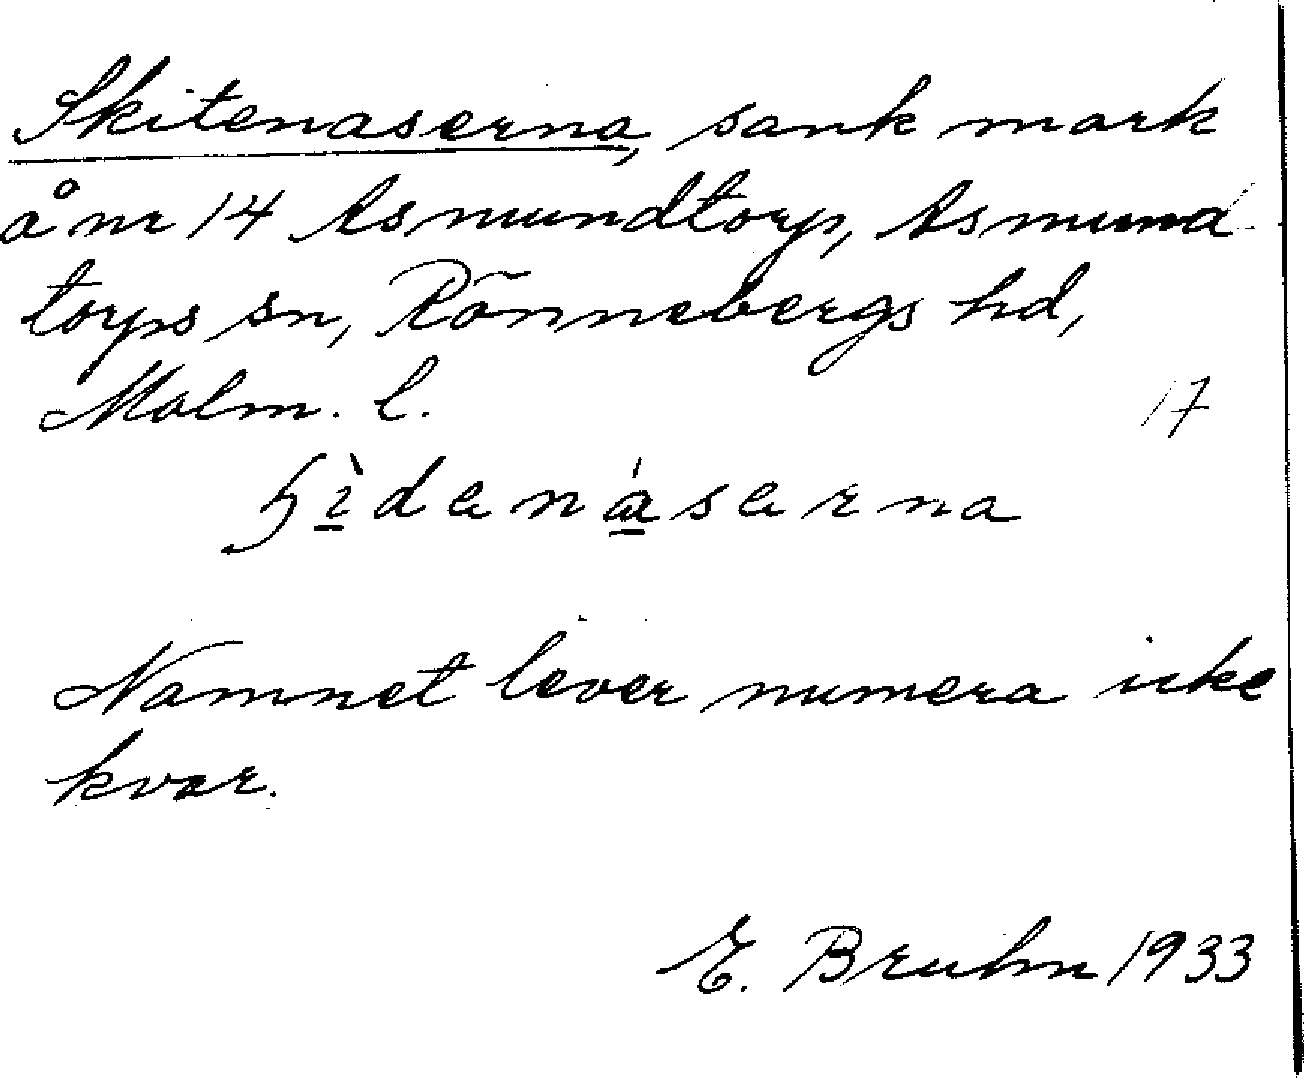 Skitenaserna, sank mark
å nr 14 Asmundtorp, Asmund
torps sn, Rönnebergs hd,
Malm. l.
17
Namnet lever numera icke
kvar.
E. Bruhn 1933